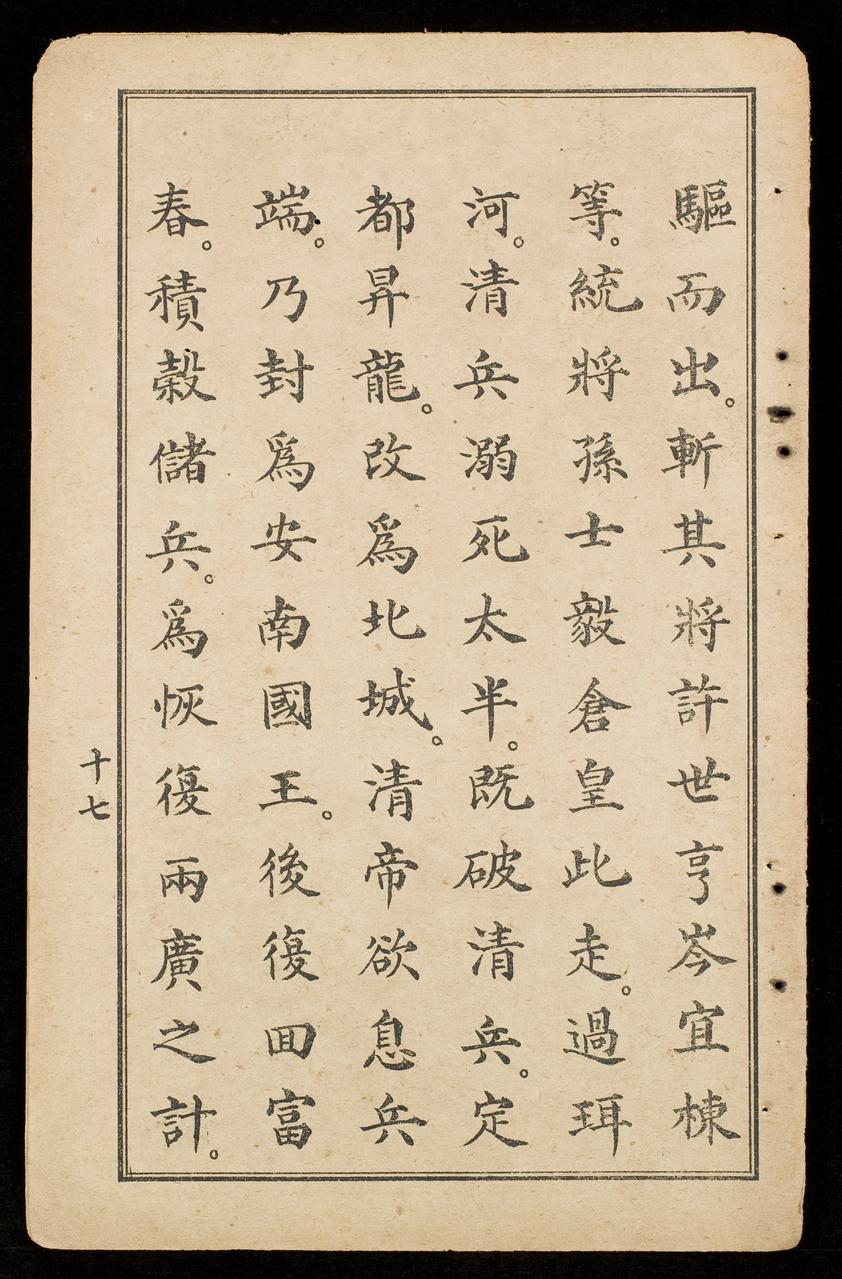 驅而出。斬其將許世亨岑宜棟
等。統將孫士毅倉皇此走。過珥
河。清兵溺死太半。既破清兵。定
都昇龍。改爲北城。清帝欲息兵
端。乃封爲安南國王。後復囬富
春。積榖儲兵。爲恢復兩廣之計。
十七